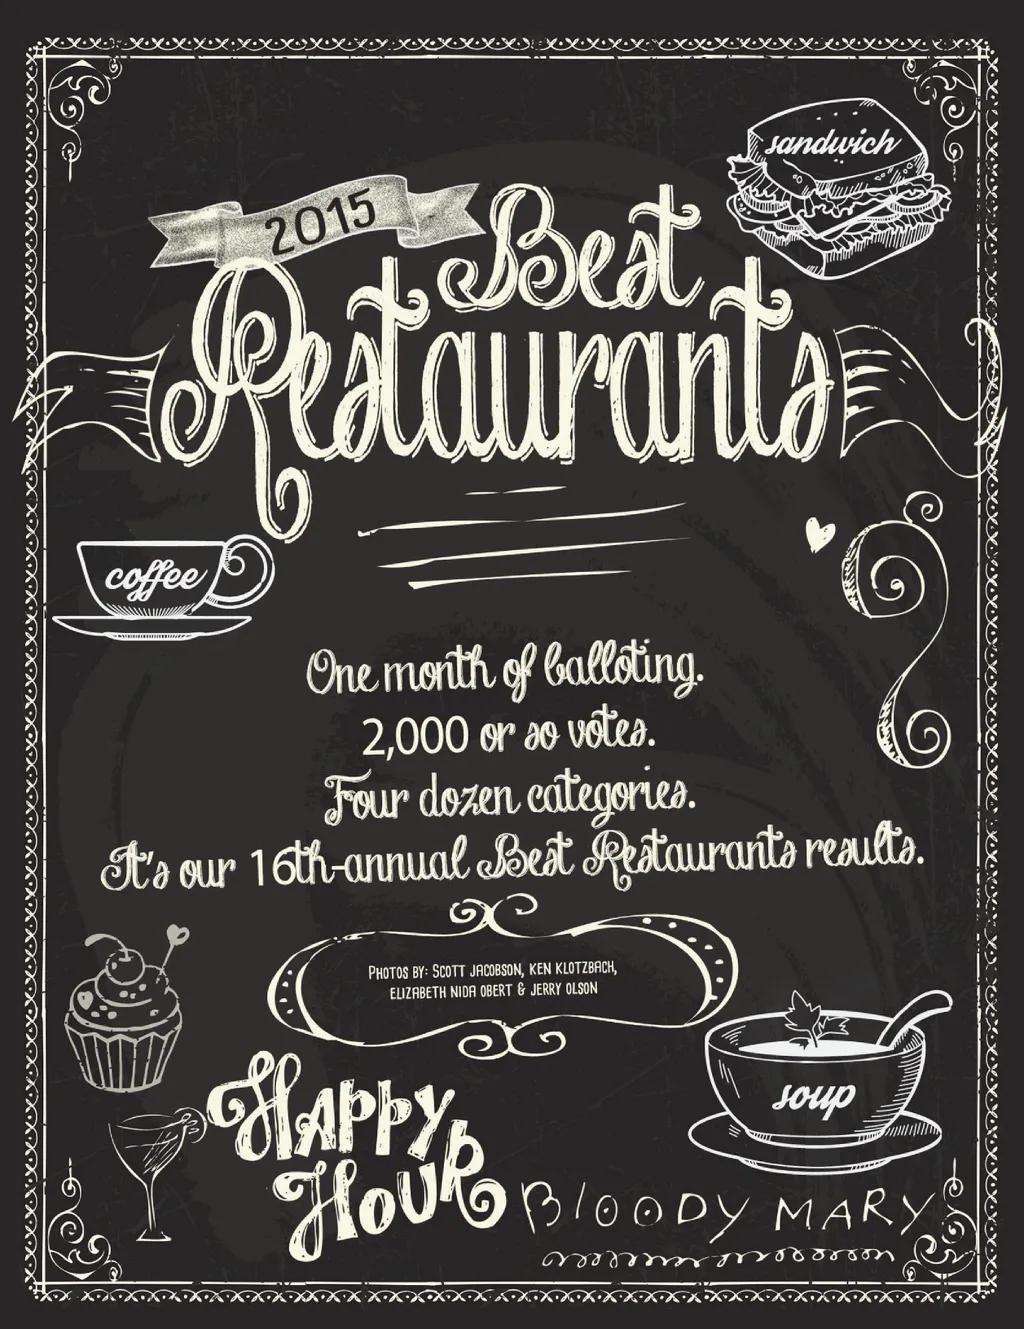 sandwich
2015
Best
Restaurants
coffee
One month of balloting.
2,000 or so votes.
Four dozen categories.
It's our 16th-annual Best Restaurants results.
PHOTOS BY: SCOTT JACOBSON, KEN KLOTZBACH,
ELIZABETH NIDA OBERT & JERRY OLSON
soup
HAPPY
HOUR
BLOODY MARY